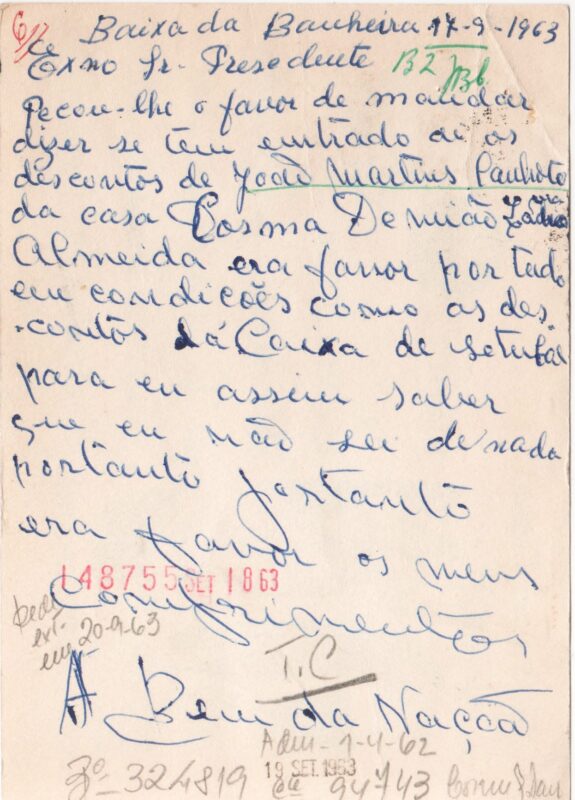 Baixa da Banheira 17-9-1963
Ex no Sr. Presedente
B2 / Bb
Peçou-lhe o favor de mandar
dizer se tem entrado ai os
descontos de João Martins Canhoto
da casa Cosma Demião
Almeida era favor por tudo
em condições como as des
contos dá Caixa de Setubal
para eu assim saber
que eu não sei de nada
portanto portanto
era favor os meus
148755 SET 18 63
Comprimentos
Pedi
ext.
em 20-9-63
T.C
A Bem da Nação
Adm - 1-4-62
19 SET. 1963
324819 94743